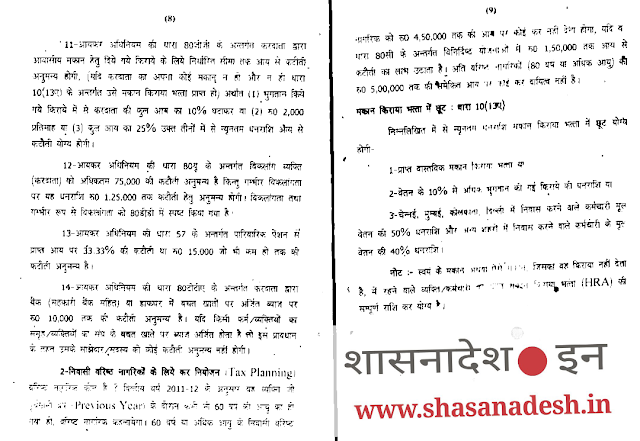 (8)
11-आयकर अधिनियम की धारा 80जीजी के अन्तर्गत करदाता द्वारा
आवासीय मकान हेतु दिये गये किराये के लिये निर्धारित सीमा तक आय से कटौती
अनुमन्य होगी, (यदि करदाता का अपना कोई मकान न हो और न ही धारा
10(13ए) के अन्तर्गत उसे मकान किराया भत्ता प्राप्त हो) अर्थात (1) भुगतान किये
गये किराये में से करदाता की कुल आय का 10% घटाकर या (2) रु0 2,000
प्रतिमाह या (3) कुल आय का 25% उक्त तीनों में से न्यूनतम धनराशि औय से
कटौती योग्य होगी।
12-आयकर अधिनियम की धारा 80यू के अन्तर्गत विकलांग व्यक्ति
(करदाता) को अधिकतम 75,000 की कटौती अनुमन्य है किन्तु गम्भीर विकलांगता
पर यह धनराशि रु0 1,25,000 तक कटौती हेतु अनुमन्य होगी। विकलांगता तथा
गम्भीर रूप से विकलांगता को 80डीडी में स्पष्ट किया गया है।
13-आयकर अधिनियम की धारा 57 के अन्तर्गत पारिवारिक पेंशन से
प्राप्त आय पर 33.33% की कटौती या रु0 15,000 जो भी कम हो तक की
कटौती अनुमन्य है।
14-आयकर अधिनियम की धारा 80टीटीए के अन्तर्गत करदाता द्वारा
बैंक (सहकारी बैंक सहित) या डाकघर में बचत खातों पर अर्जित ब्याज पर
रु0 10,000 तक की कटौती अनुमन्य है। यदि किसी फर्म/व्यक्तियों का
समूह/व्यक्तियों का संघ के बचत खाते पर ब्याज अर्जित होता है तो इस प्रावधान
के तहत उसके साझेदार/सदस्य को कोई कटौती अनुमन्य नहीं होगी।
2-निवासी वरिष्ठ नागरिकों के लिये कर नियोजन (Tax Planning)
वरिष्ठ नागरिक कौन है ? वित्तीय वर्ष 2011-12 के अनुसार वह व्यक्ति जो
Previous Year) के दौरान कभी भी 60 वर्ष की आयु का हो
गया हो, वरिष्ठ नागरिक कहलायेगा। 60 वर्ष या अधिक आयु के निवासी वरिष्ठ
(9)
नागरिक को रु0 4,50,000 तक की आय पर कोई कर नहीं देना होगा, यदि व
धारा 80सी के अन्तर्गत विनिर्दिष्ट योजनाओं में रु0 1,50,000 तक आय से
कटौती का लाभ उठाता है। अति वरिष्ठ नागरिकों (80 वर्ष या अधिक आयु) की
रु0 5,00,000 तक की आय पर कोई कर दायित्व नहीं है।
मकान किराया भत्ता में छूट : धारा 10(13ए)
निम्नलिखित में से न्यूनतम धनराशि मकान किराया भत्ता में छूट योग्य
होगी-
1-प्राप्त वास्तविक मकान किराया भत्ता या
2-वेतन के 10% से अधिक भुगतान की गई किराये की धनराशि या
3-चेन्नई, मुम्बई, कोलकाता, दिल्ली में निवास करने वाले कर्मचारी मूल
वेतन की 50% धनराशि और अन्य शहरों में निवास करने वाले कर्मचारी के मूल
वेतन की 40% धनराशि।
नोट :- स्वयं के मकान अथवा ऐसे मकान, जिसका वह किराया नहीं देता
है, में रहने वाले व्यक्ति/कर्मचारी मकान किराया भत्ता (HRA) की
सम्पूर्ण राशि कर योग्य है।
शासनादेश इन
www.shasanadesh.in